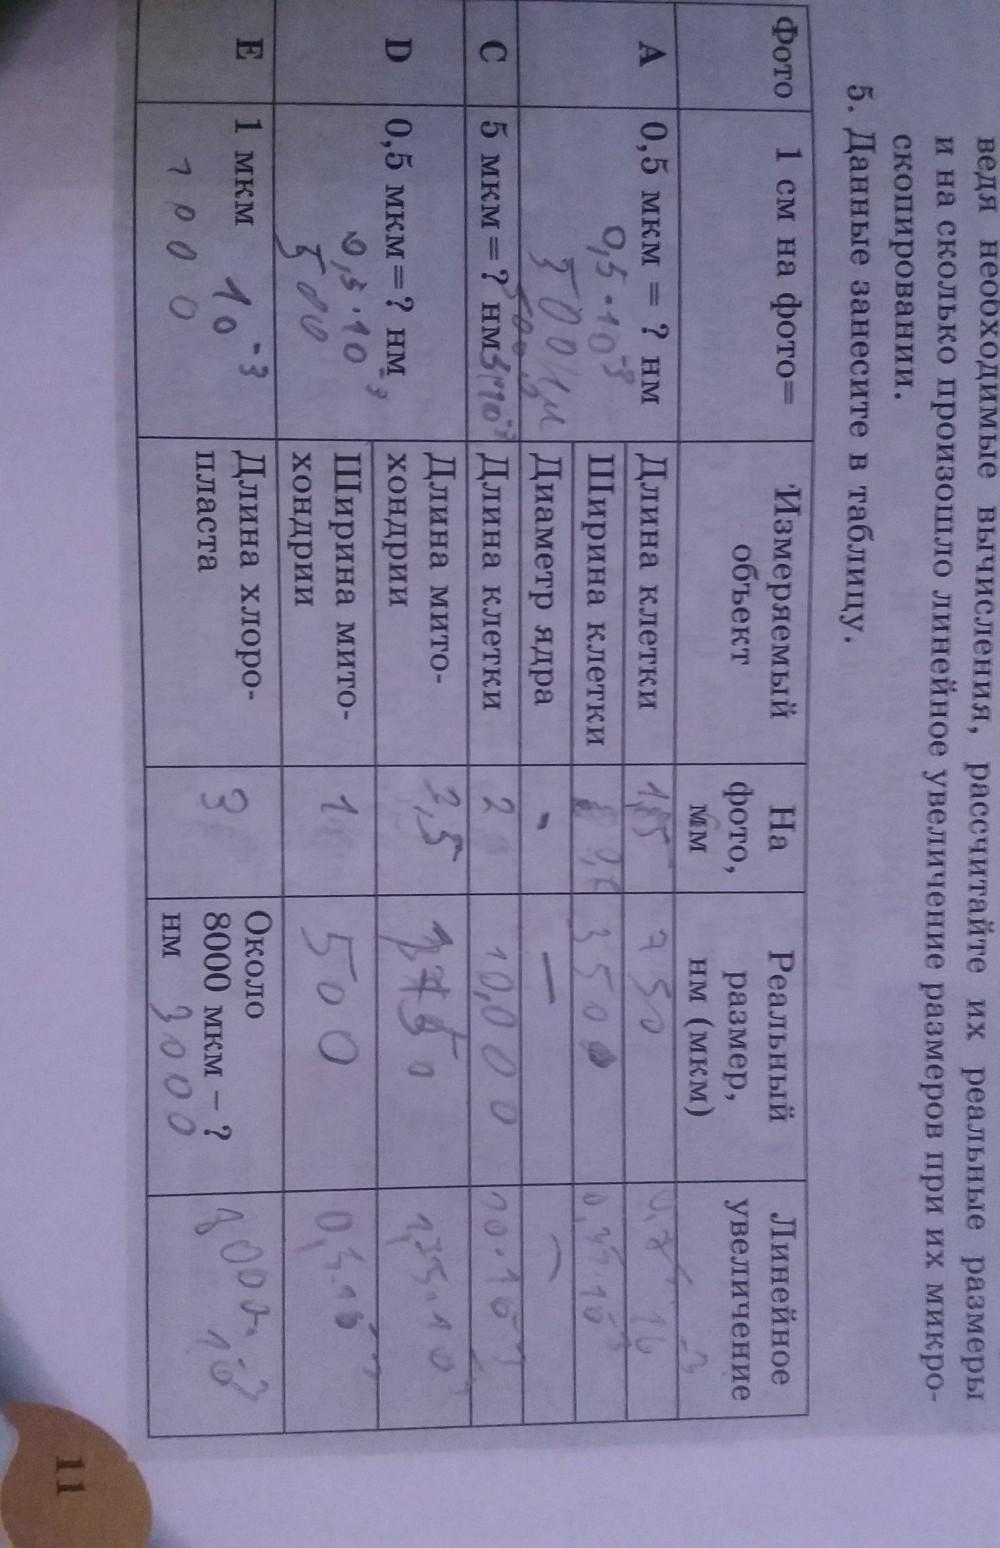 ведя необходимые вычисления, рассчитайте их реальные размеры
и на сколько произошло линейное увеличение размеров при их микро-
скопировании.
5. Данные занесите в таблицу.
Фото
1 см на фото=
Измеряемый
объект
На
фото,
мм
Реальный
размер,
нм (мкм)
Линейное
увеличение
А
0,5 мкм = ? нм
Длина клетки
750
Ширина клетки
Диаметр ядра
-
—
C
5 мкм=? нм
Длина клетки
2
10,000
D
0,5 мкм=? нм
500
Длина мито-
хондрии
Ширина мито-
хондрии
1
500
E
1 мкм 10 -3
1000
Длина хлоро-
пласта
3
Около
8000 мкм – ?
нм 3000
11